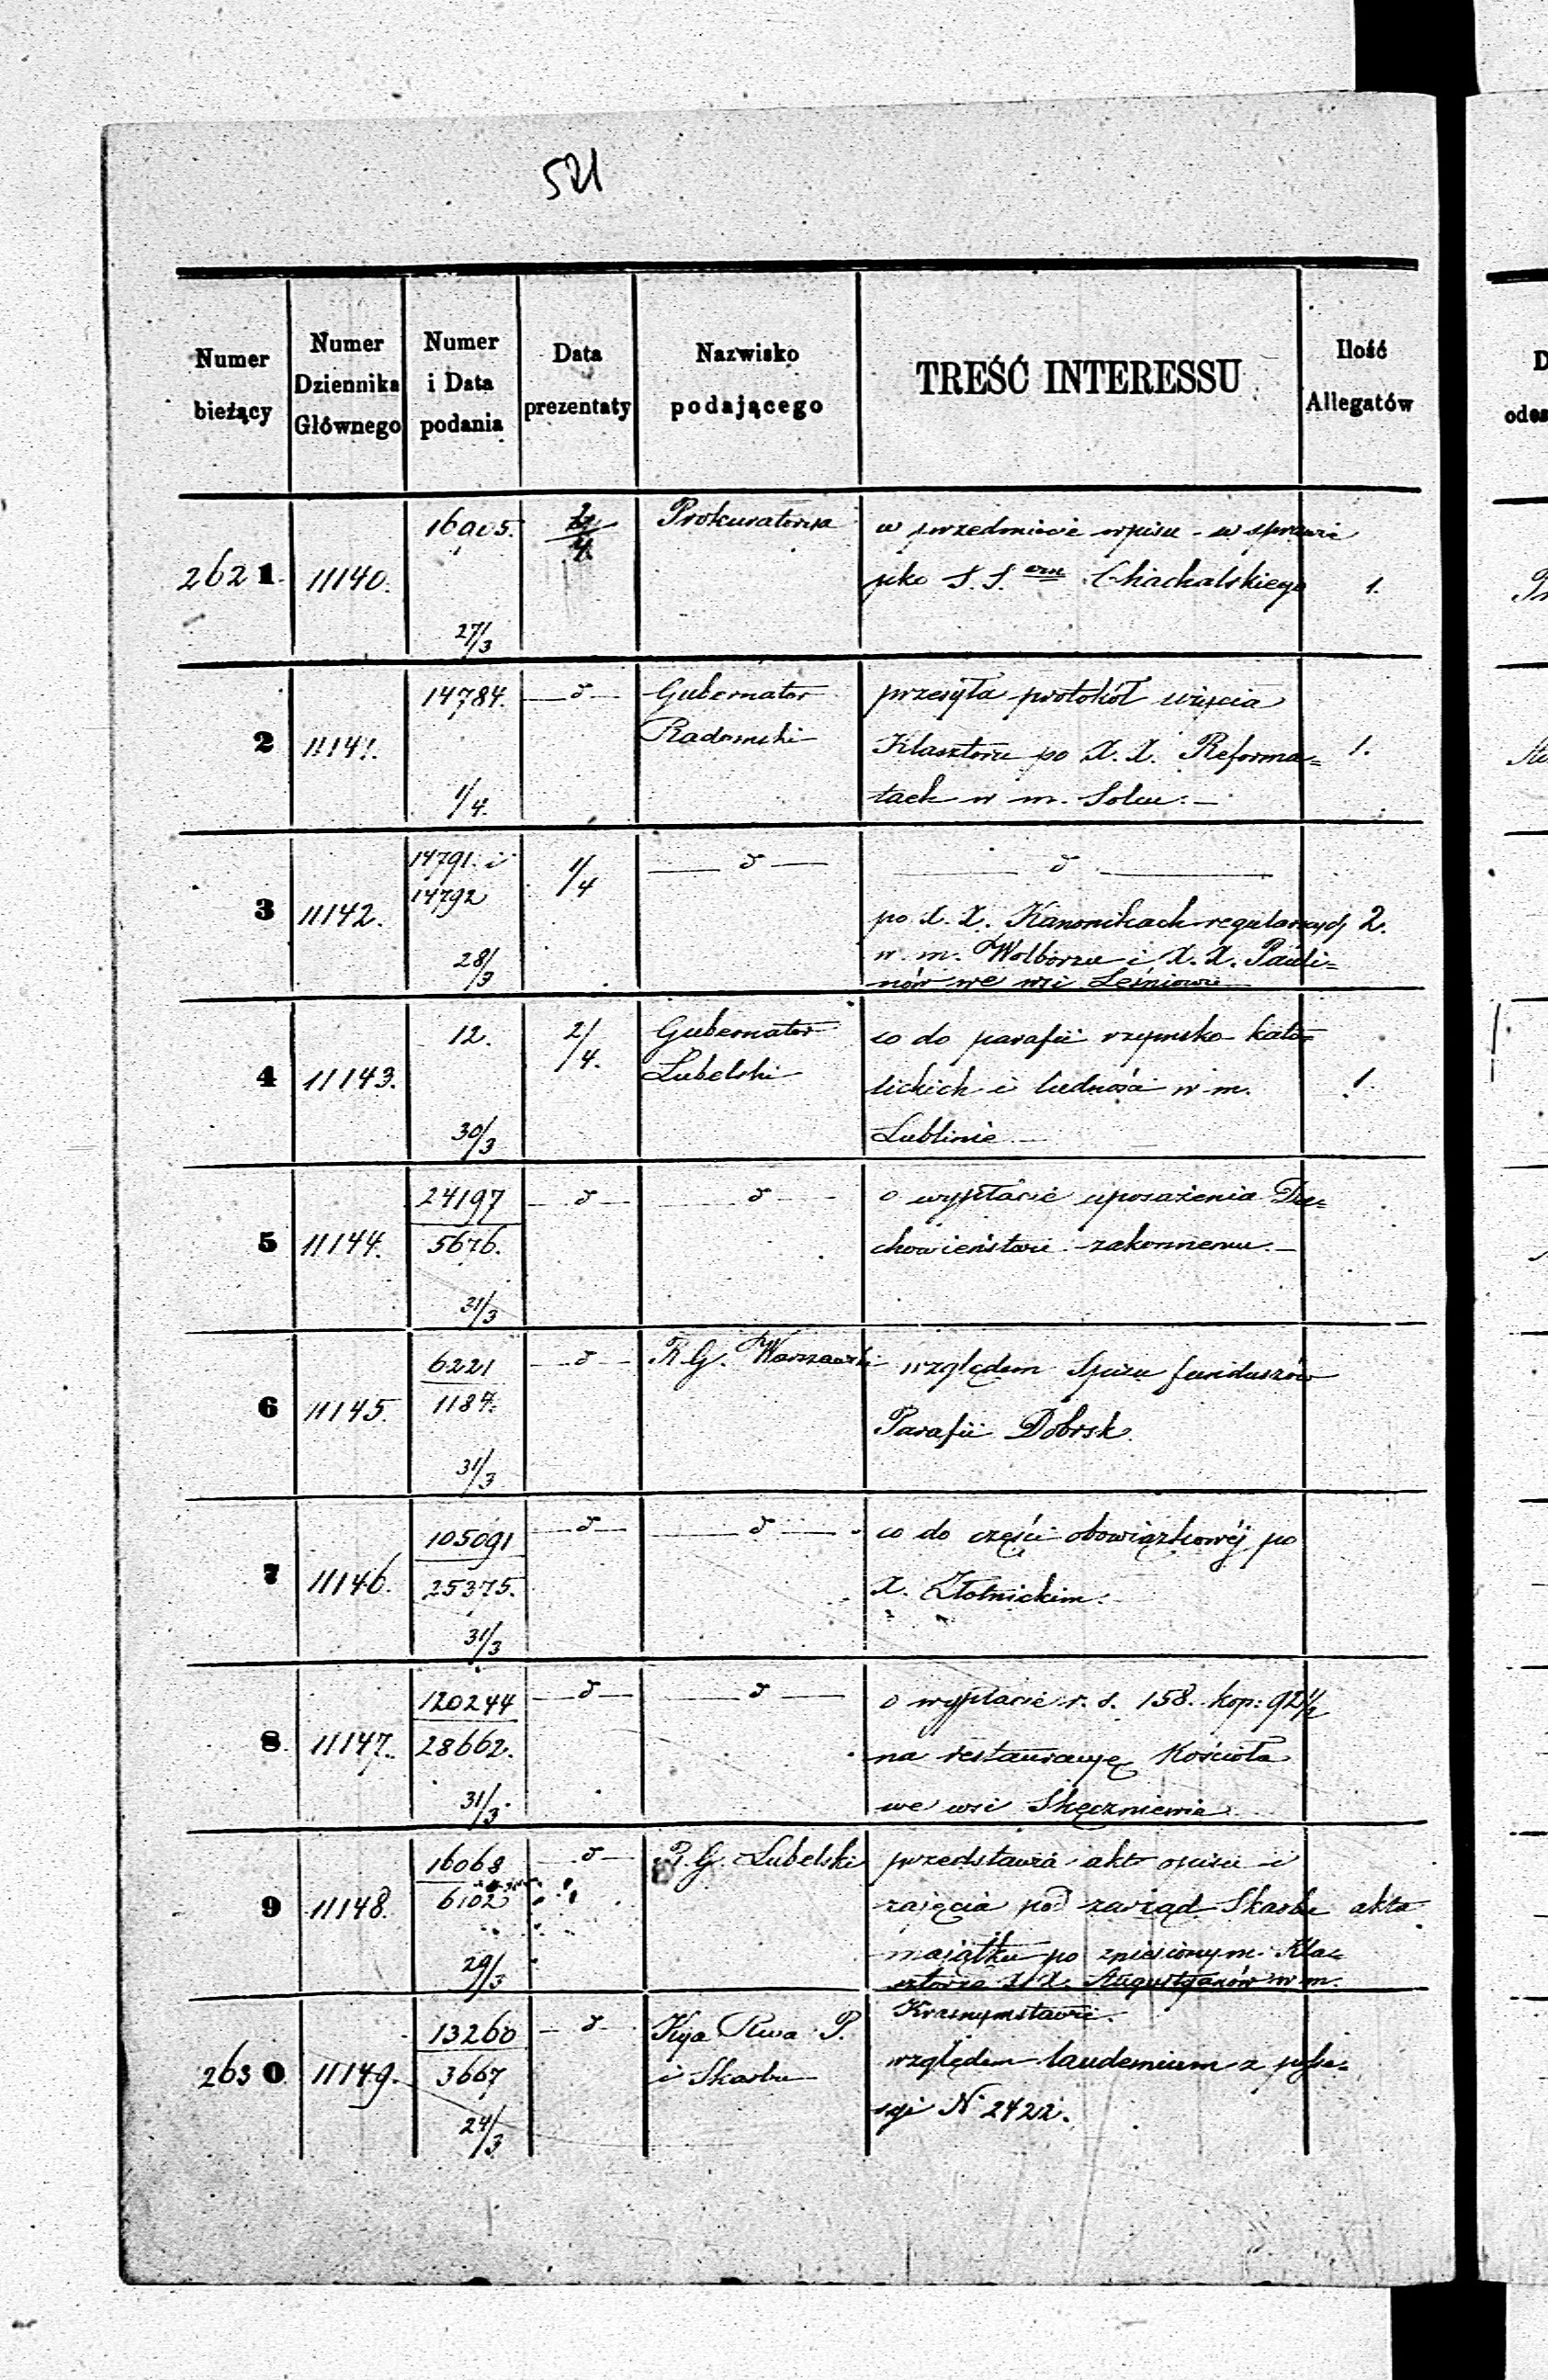 521
Numer bieżący | Numer Dziennika Głównego | Numer i Data podania | Data prezentaty | Nazwisko podającego | TREŚĆ INTERESSU | Ilość Allegatów
2621 | 11140. | 16905. 27/3 | 2/4 | Prokuratorya | w przedmiocie wpisu w sprawie
pko S. S. Chachalskiego | 1.
2 | 11141. | 14784. 1/4. | d | Gubernator Radomski | przesyła protokół zajęcia
Klasztoru po X. X. Reforma=
tach w m. Solcu. | 1.
3 | 11142. | 14791. i 14792 28/3 | 1/4 | d | d
po X. X. Kanonikach regularnych
w m. Wolborzu i X. X. Pauli=
nów we wsi Leśniowie | 2.
4 | 11143. | 12. 30/3 | 2/4. | Gubernator Lubelski | co do parafii rzymsko kato=
lickich i ludności w m.
Lublinie | 1.
5 | 11144. | 24197 5676. 31/3 | d | d | o wypłacie uposażenia Du=
chowieństwu zakonnemu.
6 | 11145. | 6221 1184. 31/3 | d | R. G. Warszawski | względem spisu funduszów
Parafii Dobrsk.
7 | 11146. | 105091 25375. 31/3 | d | d | co do części obowiązkowéj po
X. Złotnickim.
8 | 11147. | 120244 28662. 31/3 | d | d | o wypłacie r. s. 158. kop: 92 1/2
na restauracyę Kościoła
we wsi Skęczniewie
9 | 11148. | 16068 6102 29/3 | d | R. G. Lubelski | przedstawia akt opisu i
zajęcia pod zarząd Skarbu
majątku po zniesionym Kla=
sztorze X. X. Augustyanów w m.
Krasnymstawie. | akta
2630 | 11149. | 13260 3667 24/3 | d | Kya Rwa P. i Skarbu | względem laudemium z posse=
syi N. 2422.
D
odes